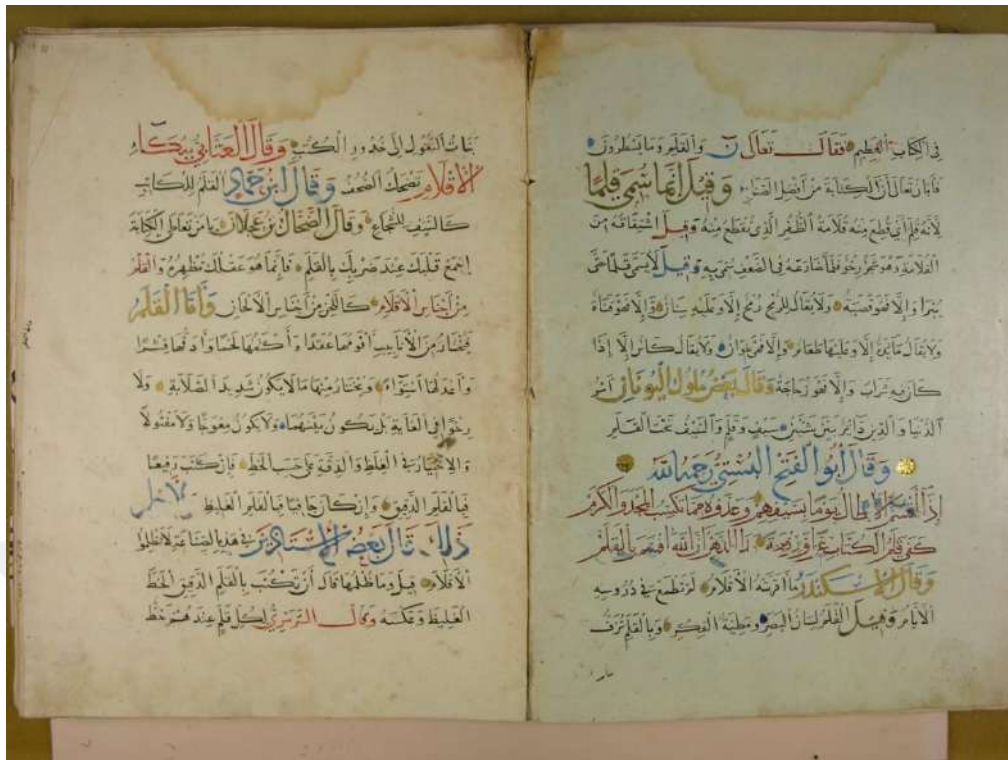 في الكتاب العظيم فقال تعالى ن والقلم وما يسطرون
فأبان تعالى أن الكتابة من أفضل الصنائع وقيل إنما سمي قلما
لأنه قلم أي قطع منه قلامة الظفر الذي تقطع منه وقيل اشتقاقه من
القلام وهو شجر رخو فلما ضارعه في الضعف سمي به وقيل لا يسمى قلما حتى
يبرا وإلا فهو قصبة ولا يقال للرمح رمح إلا وعليه سنان وإلا فهو قناة
ولا يقال مائدة إلا وعليها طعام وإلا فهي خوان ولا يقال كاس إلا إذا
كان فيه شراب وإلا فهو زجاجة وقال بعض ملوك اليونان أمر
الدنيا والدين دائر بين شيئين سيف وقلم والسيف تحت القلم
وقال أبو الفتح البستي رحمه الله
إذا أقسم الأبطال يوما بسيفهم وعدوه مما يكسب المجد والكرم
كفى قلم الكتاب عزا ورفعة مدا الدهر أن الله أقسم بالقلم
وقال الاسكندر ما أقرته الأقلام لم تطمع في دروسه
الأيام وقيل القلم لسان البصر ومطية الفكر وبالقلم تزف
بنات العقول إلى خدور الكتب وقال العتابي ببكاء
الأقلام تضحك الصحف وقال ابن حماد القلم للكاتب
كالسيف للشجاع وقال الضحاك بن عجلان يا من تعاطى الكتابة
اجمع قلبك عند ضربك بالقلم فإنما هو عقلك تظهره والقلم
من أجناس الأقلام كاللحن من أجناس الألحان وأما القلم
يختار من الأنابيب أقومها عقدا وأكثفها لحما وأدقها قشرا
وأعدلها استواء ويختار منها ما لا يكون شديد الصلابة ولا
رخوا في الغاية بل يكون بينهما ولا يكون معوجا ولا مفتولا
والاختيار في الغلظ والدقة على حسب الخط فإن كتب رفيعا
فبالقلم الدقيق وإن كان جافيا فبالقلم الغليظ
ذلك قال بعض الأستاذين في هذه الصناعة لا تظلموا
الأقلام قيل وما ظلمها قال أن تكتب بالقلم الدقيق الخط
الغليظ وعكسه وقال السرمري لكل قلم عندهم خط